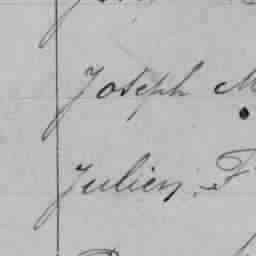 Joseph M
Julien F